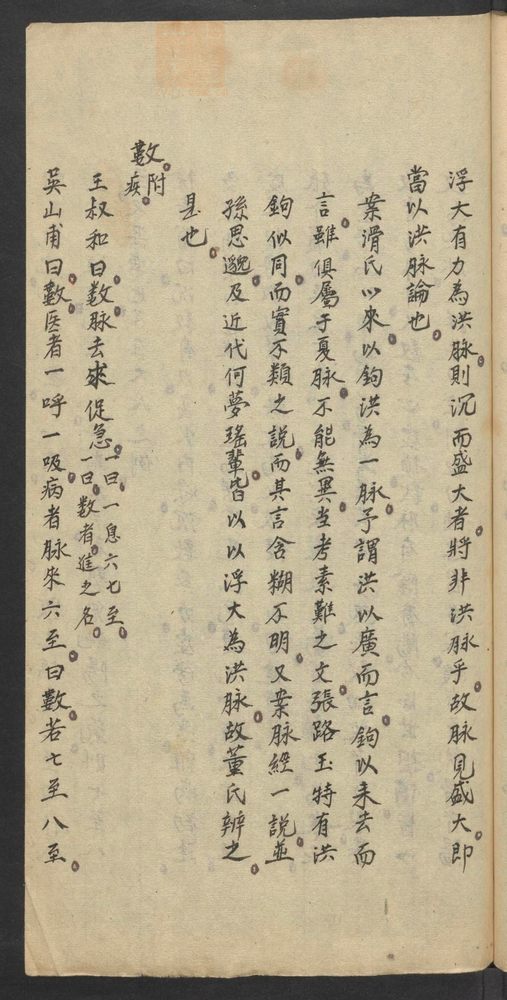 浮大有力為洪脉。則沉而盛大者。將非洪脉乎。故脉見盛大。即
當以洪脉論也。
案滑氏以來。以鉤洪為一脉。予謂洪以廣而言。鉤以来去而
言。雖俱屬于夏脉。不能無異。当考素難之文。張路玉特有洪
鉤似同而實不類之說。而其言含糊不明。又案脉經一說。並
孫思邈。及近代何夢瑤輩。皆以以浮大為洪脉。故董氏辨之。
是也。
數。附疾。
王叔和曰。數脉去來促急。一曰。一息六七至。一曰。數者進之名。
吳山甫曰。數。医者一呼一吸。病者脉来六至。曰數。若七至八至。